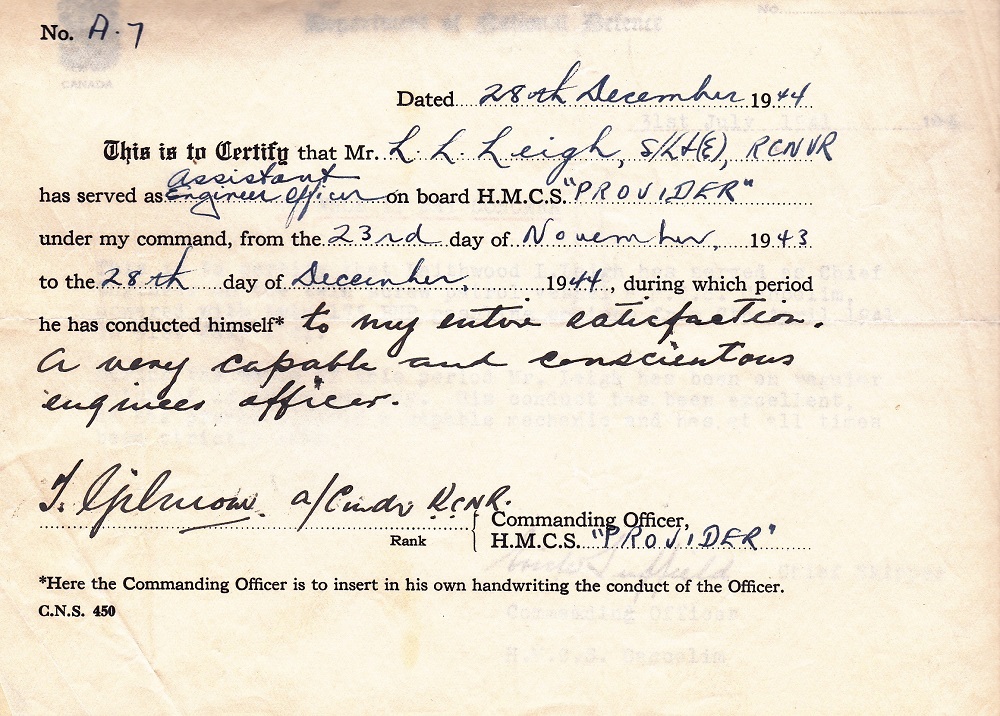 No. A.7
CANADA
Department of National Defence
No.
Dated 28th December 1944
31st July 1941
This is to Certify that Mr. L. L. Leigh, S/Lt(E), RCNVR
Assistant
has served as Engineer Officer on board H.M.C.S. "PROVIDER"
under my command, from the 23rd day of November, 1943
to the 28th day of December, 1944, during which period
he has conducted himself* to my entire satisfaction.
A very capable and conscientous
engineer officer.
T. Gilmour. a/Cmdr R.C.N.R.
Commanding Officer,
Rank
H.M.C.S. "PROVIDER"
*Here the Commanding Officer is to insert in his own handwriting the conduct of the Officer.
C.N.S. 450
Commanding Officer